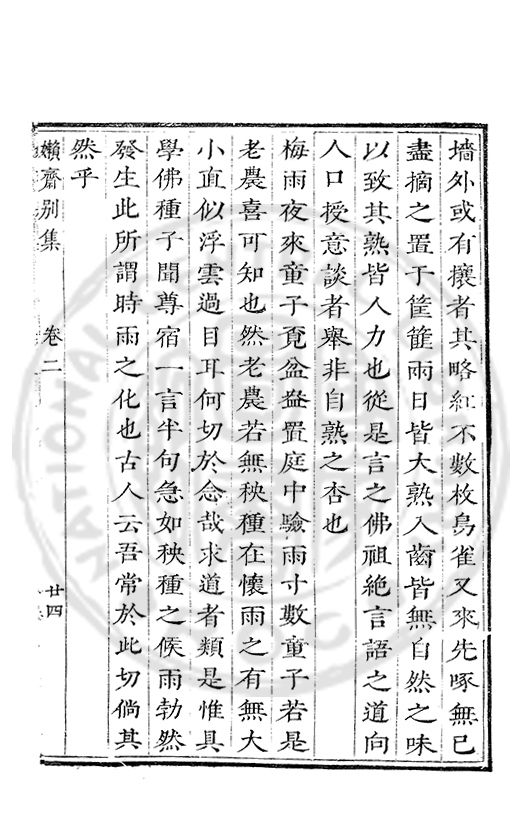 墻外或有攘者其略紅不數枚鳥雀又來先啄無已
盡摘之置于筐篚兩日皆大熟入齒皆無自然之味
以致其熟皆人力也從是言之佛祖絶言語之道向
人口授意談者舉非自熟之杏也
梅雨夜來童子覔盆盎置庭中驗雨寸數童子若是
老農喜可知也然老農若無秧種在懷雨之有無大
小直似浮雲過目耳何切於念哉求道者類是惟具
學佛種子聞尊宿一言半句急如秧種之候雨勃然
發生此所謂時雨之化也古人云吾常於此切倘其
然乎
嬾齋别集
卷二
廿四